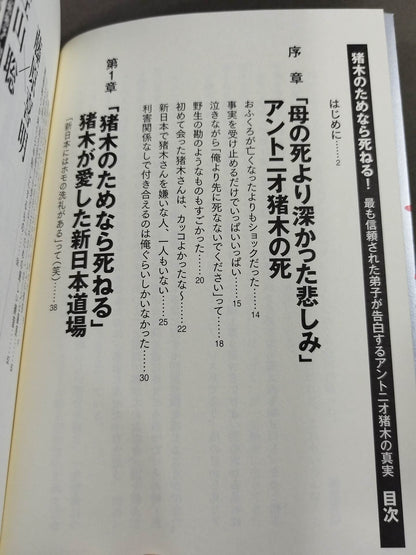 猪木のためなら死ねる! 最も信頼された弟子が告白するアントニオ猪木の真実 目次
はじめに……2
序 章 「母の死より深かった悲しみ」
アントニオ猪木の死
おふくろが亡くなったよりもショックだった……14
事実を受け止めるだけでいっぱいいっぱい……15
泣きながら「俺より先に死なないでください」って……18
野生の勘のようなものもすごかった……20
初めて会った猪木さんは、カッコよかったな〜……22
新日本で猪木さんを嫌いな人、一人もいない……25
利害関係なしで付き合えるのは俺ぐらいしかいなかった……30
第1章 「猪木のためなら死ねる」
猪木が愛した新日本道場
「新日本にはホモの洗礼がある」って(笑)……38